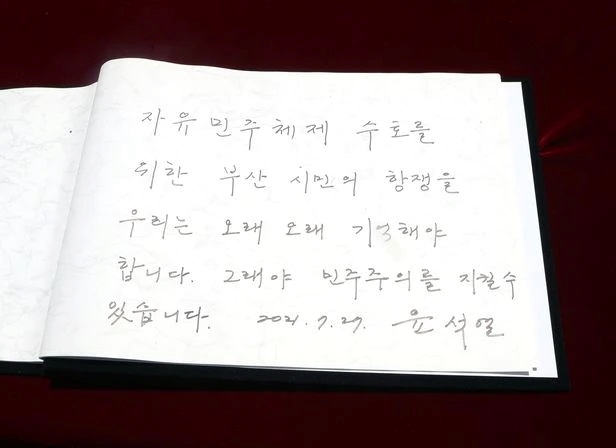 자유민주체제 수호를
위한 부산 시민의 항쟁을
우리는 오래 오래 기억해야
합니다. 그래야 민주주의를 지킬수
있습니다. 2021.7.27. 윤석열